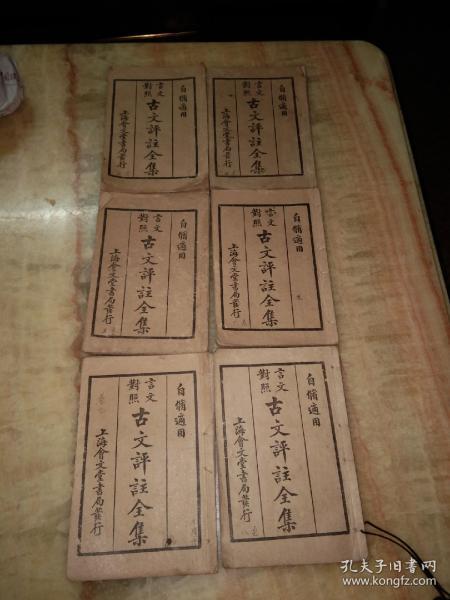 自備適用
言文對照
古文評註全集
上海會文堂書局發行
自備適用
言文對照
古文評註全集
上海會文堂書局發行
自備適用
言文對照
古文評註全集
上海會文堂書局發行
自備適用
言文對照
古文評註全集
上海會文堂書局發行
自備適用
言文對照
古文評註全集
上海會文堂書局發行
自備適用
言文對照
古文評註全集
上海會文堂書局發行
孔夫子旧书网
www.kongfz.com